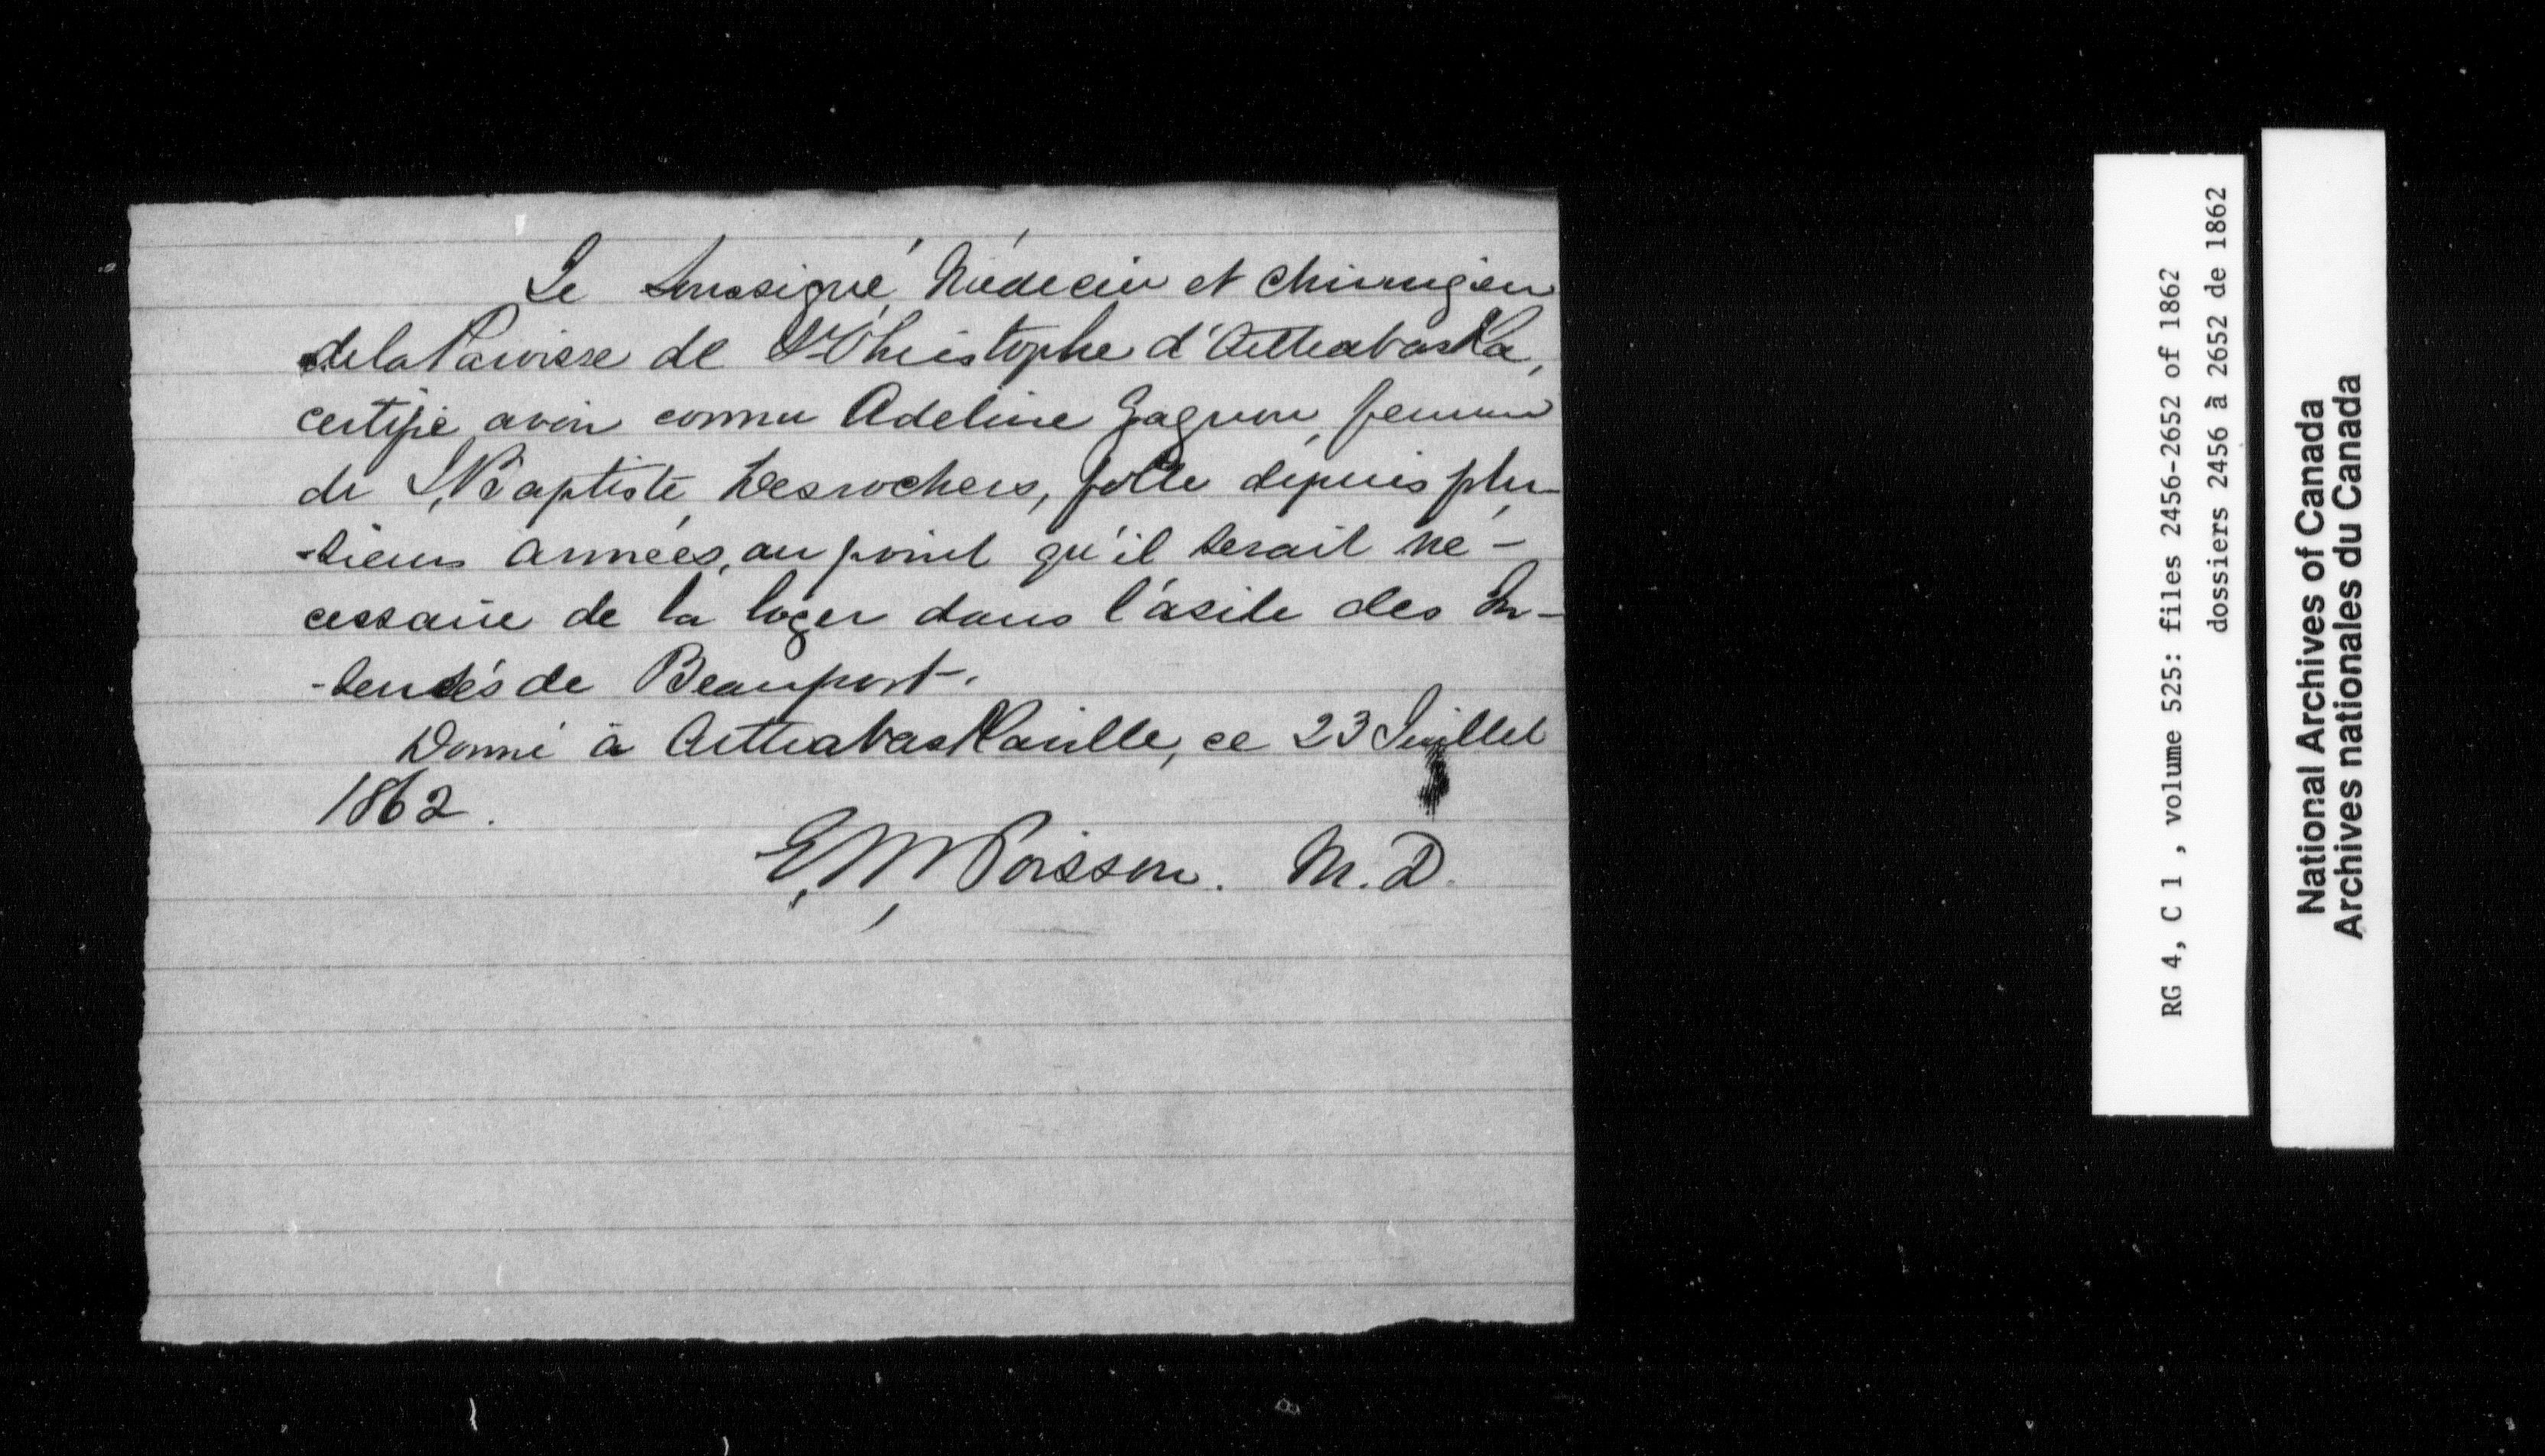 Le Soussigné, Médecin et Chirurgien
de la Paroisse de St Christophe d'Arthabaska,
certifie avoir connu Adeline Gagnon, femme
de J. Baptiste Desrochers, folle depuis plu-
-sieurs années, au point qu'il serait né-
cessaire de la loger dans l'asile des In-
-sensés de Beauport.
Donné à Arthabaskaville, ce 23 Juillet
1862.
E. M. Poisson. M. D.
RG 4, C 1 , volume 525: files 2456-2652 of 1862
dossiers 2456 à 2652 de 1862
National Archives of Canada
Archives nationales du Canada